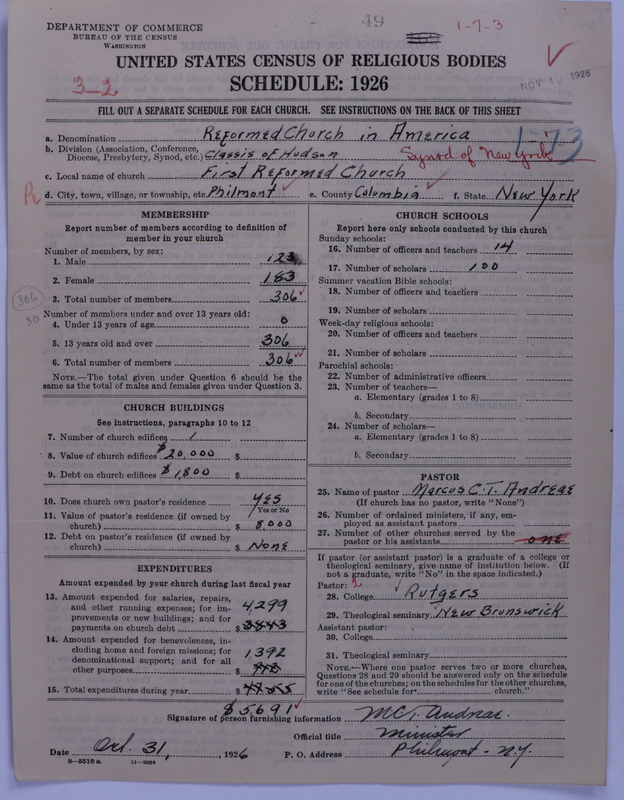 49
1-7-3
DEPARTMENT OF COMMERCE
BUREAU OF THE CENSUS
WASHINGTON
UNITED STATES CENSUS OF RELIGIOUS BODIES
SCHEDULE: 1926
3-2
NOV 1 1926
FILL OUT A SEPARATE SCHEDULE FOR EACH CHURCH. SEE INSTRUCTIONS ON THE BACK OF THIS SHEET
a. Denomination Reformed Church in America
1-73
b. Division (Association, Conference, Diocese, Presbytery, Synod, etc.) Classis of Hudson Synod of New York
c. Local name of church First Reformed Church
R d. City, town, village, or township, etc. Philmont e. County Columbia f. State New York
MEMBERSHIP
Report number of members according to definition of
member in your church
Number of members, by sex:
1. Male 123
2. Female 183
3. Total number of members 306
306
30
Number of members under and over 13 years old:
4. Under 13 years of age 0
5. 13 years old and over 306
6. Total number of members 306
NOTE.—The total given under Question 6 should be the
same as the total of males and females given under Question 3.
CHURCH BUILDINGS
See instructions, paragraphs 10 to 12
7. Number of church edifices 1
8. Value of church edifices $20,000 $
9. Debt on church edifices $1,800 $
10. Does church own pastor's residence YES
Yes or No
11. Value of pastor's residence (if owned by
church) $ 8000
12. Debt on pastor's residence (if owned by
church) $ None
EXPENDITURES
Amount expended by your church during last fiscal year
13. Amount expended for salaries, repairs,
and other running expenses; for im-
provements or new buildings; and for
payments on church debt $ 4299
3843
14. Amount expended for benevolences, in-
cluding home and foreign missions; for
denominational support; and for all
other purposes $ 1,392
15. Total expenditures during year $
$5691
CHURCH SCHOOLS
Report here only schools conducted by this church
Sunday schools:
16. Number of officers and teachers 14
17. Number of scholars 100
Summer vacation Bible schools:
18. Number of officers and teachers
19. Number of scholars
Week-day religious schools:
20. Number of officers and teachers
21. Number of scholars
Parochial schools:
22. Number of administrative officers
23. Number of teachers—
a. Elementary (grades 1 to 8)
b. Secondary
24. Number of scholars—
a. Elementary (grades 1 to 8)
b. Secondary
PASTOR
25. Name of pastor Marcus C.T. Andreae
(If church has no pastor, write "None")
26. Number of ordained ministers, if any, em-
ployed as assistant pastors
27. Number of other churches served by the
pastor or his assistants one
If pastor (or assistant pastor) is a graduate of a college or
theological seminary, give name of institution below. (If
not a graduate, write "No" in the space indicated.)
Pastor: 2
28. College Rutgers
29. Theological seminary New Brunswick
Assistant pastor:
30. College
31. Theological seminary
NOTE.—Where one pastor serves two or more churches,
Questions 28 and 29 should be answered only on the schedule
for one of the churches; on the schedules for the other churches,
write "See schedule for church."
Signature of person furnishing information MCT. Andreae.
Official title Minister
Date Oct. 31, , 1926 P. O. Address Philmont - N.Y.
8-5518 a 11-9024